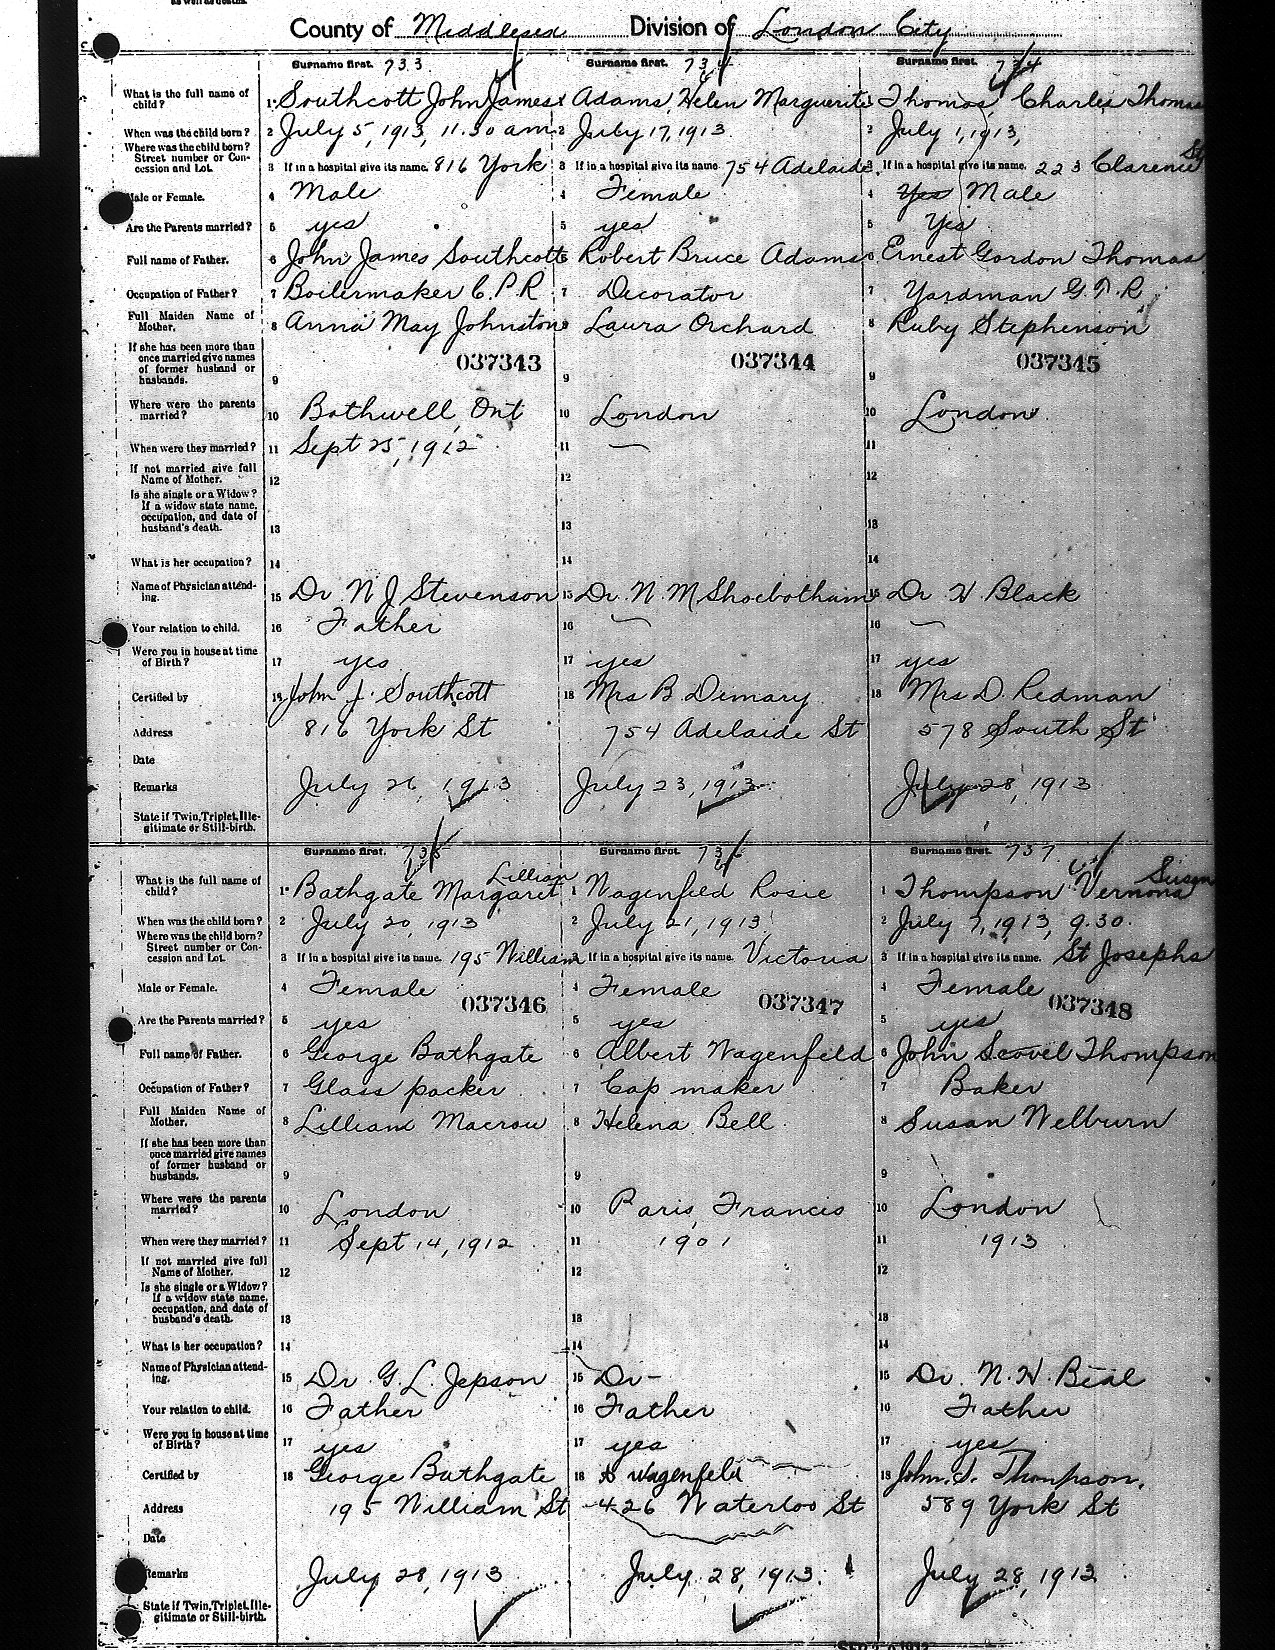 as well as deaths.
County of Middlesex Division of London City
Surname first. 733 Surname first. 734 Surname first. 734
What is the full name of child? 1 Southcott John James 1 Adams, Helen Marguerite 1 Thomas, Charles Thomas
When was the child born? 2 July 5, 1913, 11.30 am 2 July 17, 1913. 2 July 1, 1913,
Where was the child born? Street number or Concession and Lot. 3 If in a hospital give its name. 816 York 3 If in a hospital give its name. 754 Adelaide 3 If in a hospital give its name. 223 Clarence St
Male or Female. 4 Male 4 Female 4 Yes Male
Are the Parents married? 5 yes 5 yes 5 Yes
Full name of Father. 6 John James Southcott 6 Robert Bruce Adams 6 Ernest Gordon Thomas
Occupation of Father? 7 Boilermaker C.P.R. 7 Decorator 7 Yardman G.T.R
Full Maiden Name of Mother. 8 Anna May Johnston 8 Laura Orchard 8 Ruby Stephenson
037343 037344 037345
If she has been more than once married give names of former husband or husbands. 9 9 9
Where were the parents married? 10 Bothwell, Ont 10 London 10 London
When were they married? 11 Sept 25, 1912 11 — 11
If not married give full Name of Mother. 12 12 12
Is she single or a Widow? If a widow state name, occupation, and date of husband's death. 13 13 13
What is her occupation? 14 14 14
Name of Physician attending. 15 Dr N J Stevenson 15 Dr. N. M Shoebotham 15 Dr H. Black
Your relation to child. 16 Father 16 — 16 —
Were you in house at time of Birth? 17 yes 17 yes 17 yes
Certified by 18 John J. Southcott 18 Mrs B. Demary 18 Mrs D. Redman
Address 816 York St 754 Adelaide St 578 South St
Date
Remarks July 26, 1913 July 23, 1913 July 28, 1913
State if Twin, Triplet, Illegitimate or Still-birth.
Surname first. 735 Surname first. 736 Surname first. 737
What is the full name of child? 1 Bathgate Margaret Lillian 1 Wagenfeld Rosie 1 Thompson Vernona Susan
When was the child born? 2 July 20, 1913 2 July 21, 1913 2 July 7, 1913, 9.30.
Where was the child born? Street number or Concession and Lot. 3 If in a hospital give its name. 195 William 3 If in a hospital give its name. Victoria 3 If in a hospital give its name. St Josephs
Male or Female. 4 Female 4 Female 4 Female
037346 037347 037348
Are the Parents married? 5 yes 5 yes 5 yes
Full name of Father. 6 George Bathgate 6 Albert Wagenfeld 6 John Scovel Thompson
Occupation of Father? 7 Glass packer 7 Cap maker 7 Baker
Full Maiden Name of Mother. 8 Lilliand Macrow 8 Helena Bell 8 Susan Welburn
If she has been more than once married give names of former husband or husbands. 9 9 9
Where were the parents married? 10 London 10 Paris, Francis 10 London
When were they married? 11 Sept 14, 1912 11 1901 11 1913
If not married give full Name of Mother. 12 12 12
Is she single or a Widow? If a widow state name, occupation, and date of husband's death. 13 13 13
What is her occupation? 14 14 14
Name of Physician attending. 15 Dr G. L. Jepson 15 Dr — 15 Dr. N. H. Beal
Your relation to child. 16 Father 16 Father 16 Father
Were you in house at time of Birth? 17 yes 17 yes 17 yes
Certified by 18 George Bathgate 18 A Wagenfeld 18 John. S. Thompson.
Address 195 William St 426 Waterloo St 589 York St
Date
Remarks July 28, 1913 July 28, 1913. July 28, 1913
State if Twin, Triplet, Illegitimate or Still-birth.